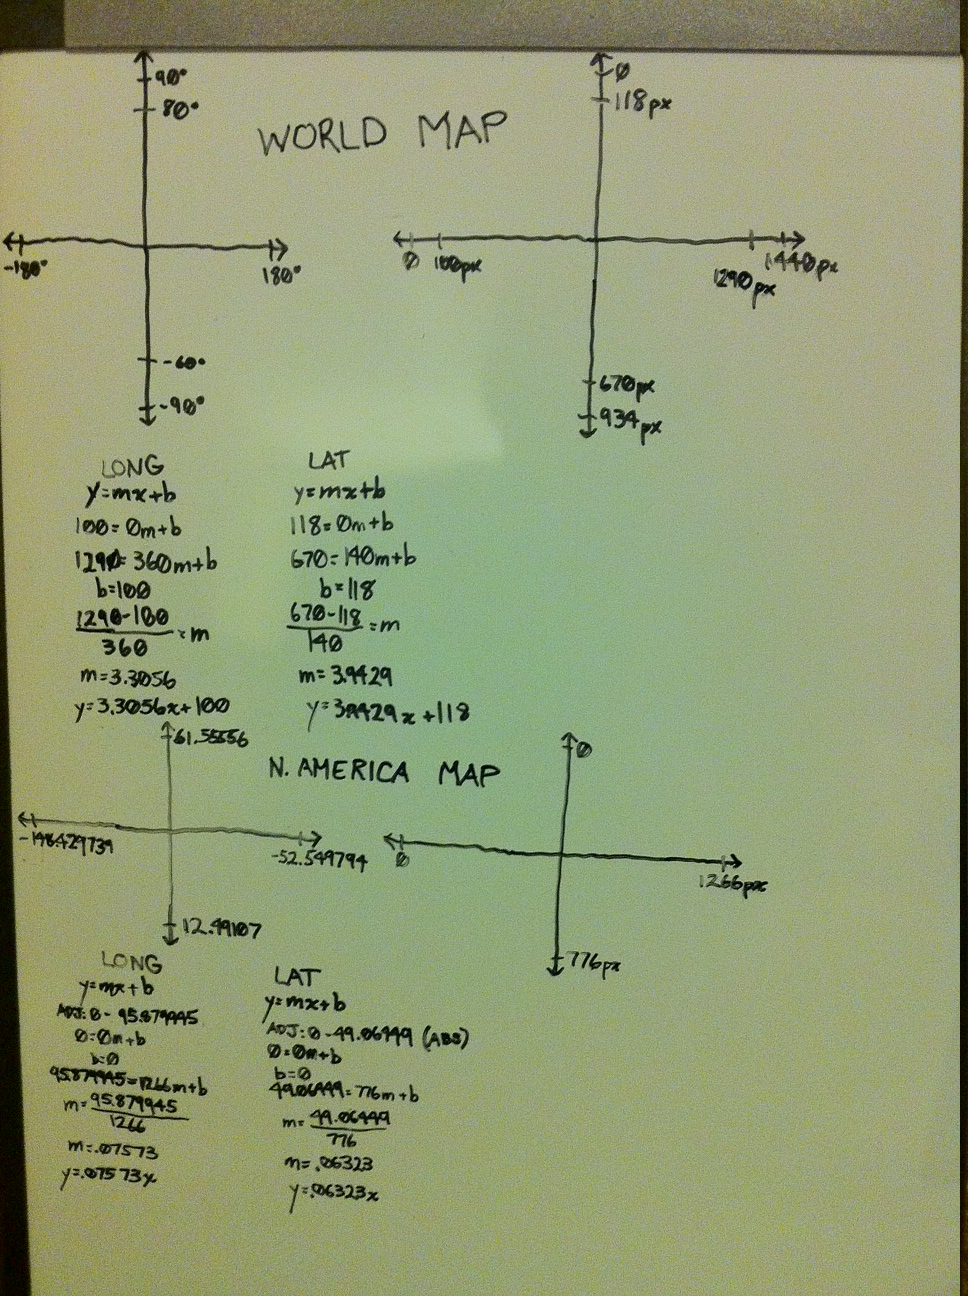 90°
80°
-180°
180°
-60°
-90°
WORLD MAP
0
118px
0
100px
1290px
1440px
670px
934px
LONG
y=mx+b
100=0m+b
1290=360m+b
b=100
1290-100
360
=m
m=3.3056
y=3.3056x+100
LAT
y=mx+b
118=0m+b
670=140m+b
b=118
670-118
140
=m
m=3.9429
y=3.9429x+118
N. AMERICA MAP
61.55556
-148.429739
-52.549794
12.49107
0
0
1266px
776px
LONG
y=mx+b
ADJ: 0-95.879945
0=0m+b
b=0
95.879945=1266m+b
m=95.879945
1266
m=.07573
y=.07573x
LAT
y=mx+b
ADJ: 0-49.06449 (ABS)
0=0m+b
b=0
49.06449=776m+b
m=49.06449
776
m=.06323
y=.06323x